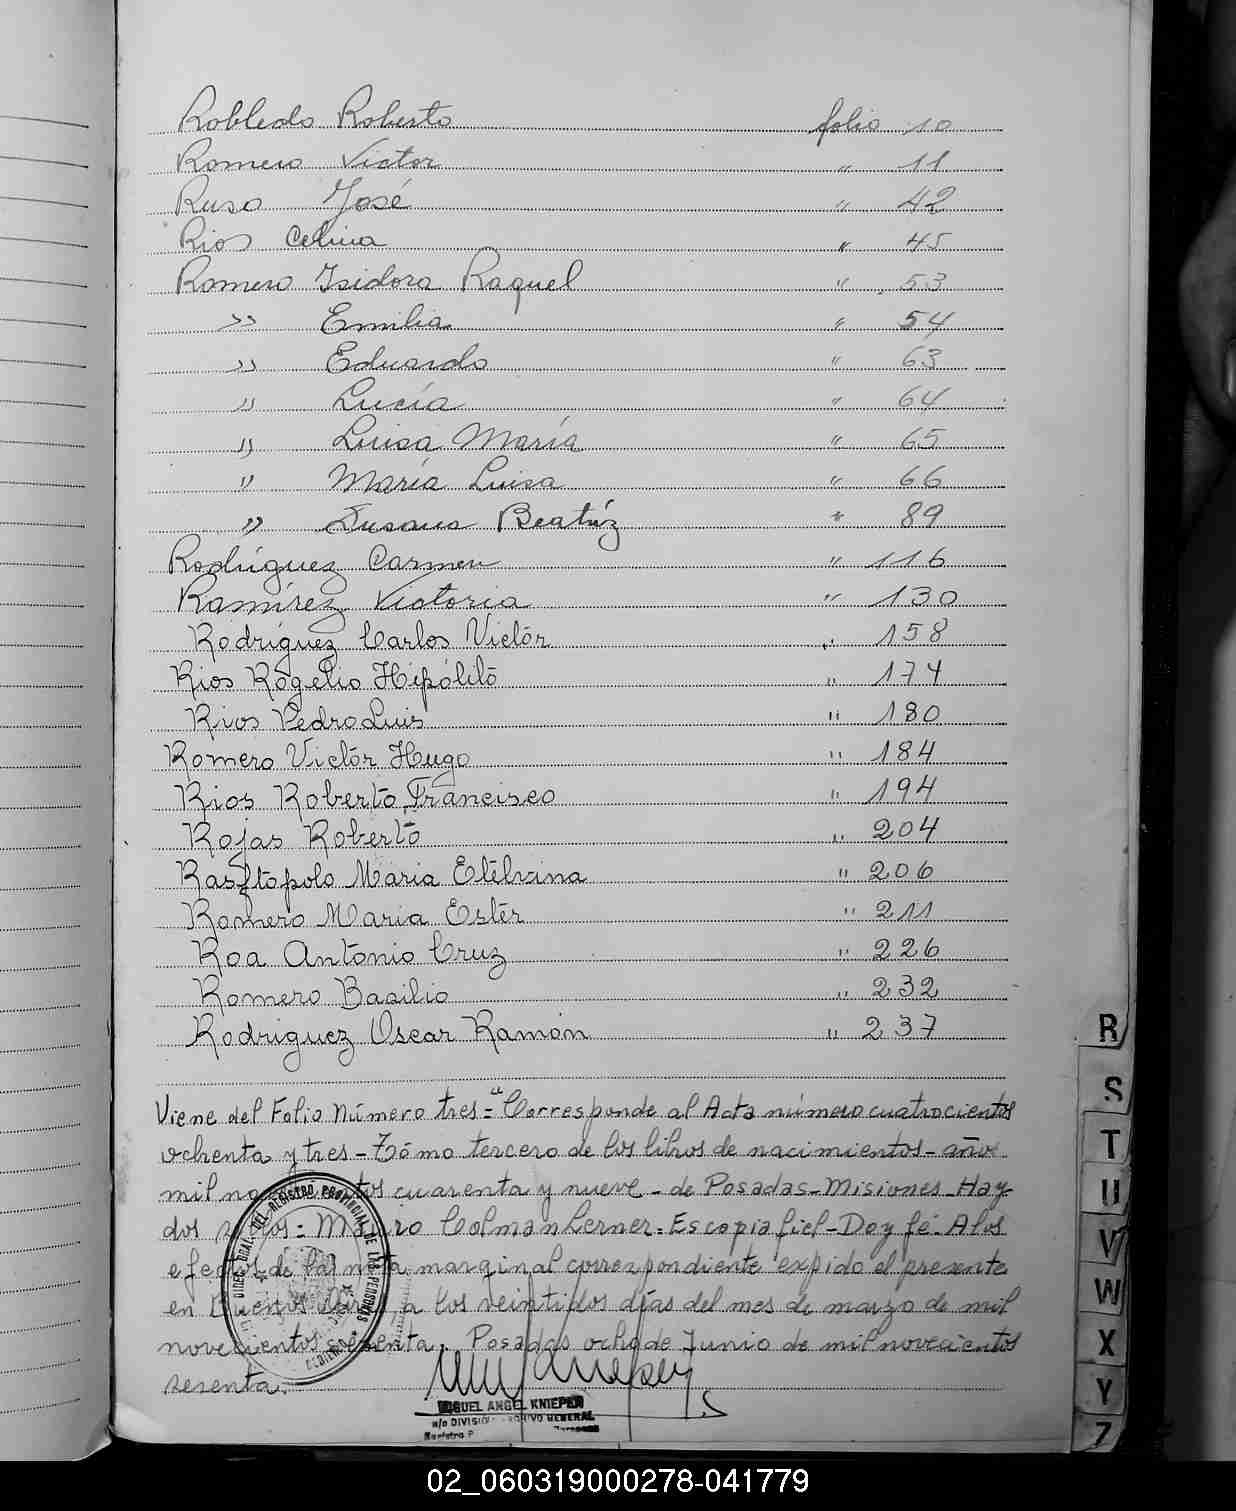 Robledo Roberto folio 10
Romero Victor " 11
Ruso José " 42
Rios Celina " 45
Romero Isidora Raquel " 53
" Emilia " 54
" Eduardo " 63
" Lucía " 64
" Luisa María " 65
" María Luisa " 66
" Susana Beatríz " 89
Rodríguez Carmen " 116
Ramírez Victoria " 130
Rodríguez Carlos Victór " 158
Rios Rogelio Hipólitó " 174
Rios Pedro Luis " 180
Romero Victór Hugo " 184
Rios Roberto Francisco " 194
Rojas Roberto " 204
Rasftopolo Maria Etelvina " 206
Romero Maria Ester " 211
Roa Antonio Cruz " 226
Romero Basilio " 232
Rodriguez Oscar Ramón " 237
Viene del Folio número tres = "Corresponde al Acta número cuatrocientos
ochenta y tres - Tómo tercero de los libros de nacimientos - año
mil cuarenta y nueve - de Posadas - Misiones - Hay
dos = Colman Lerner = Es copia fiel - Doy fé - A los
efectos de la nota marginal correspondiente expido el presente
en Buenos a los veintidos días del mes de marzo de mil
novecientos sesenta. Posadas ocho de Junio de mil novecientos
sesenta.
DIREC. GRAL. DEL REGISTRO PROVINCIAL DE LAS PERSONAS
MIGUEL ANGEL KNIEPER
a/c DIVISION ARCHIVO GENERAL
R
S
T
U
V
W
X
Y
Z
02_060319000278-041779